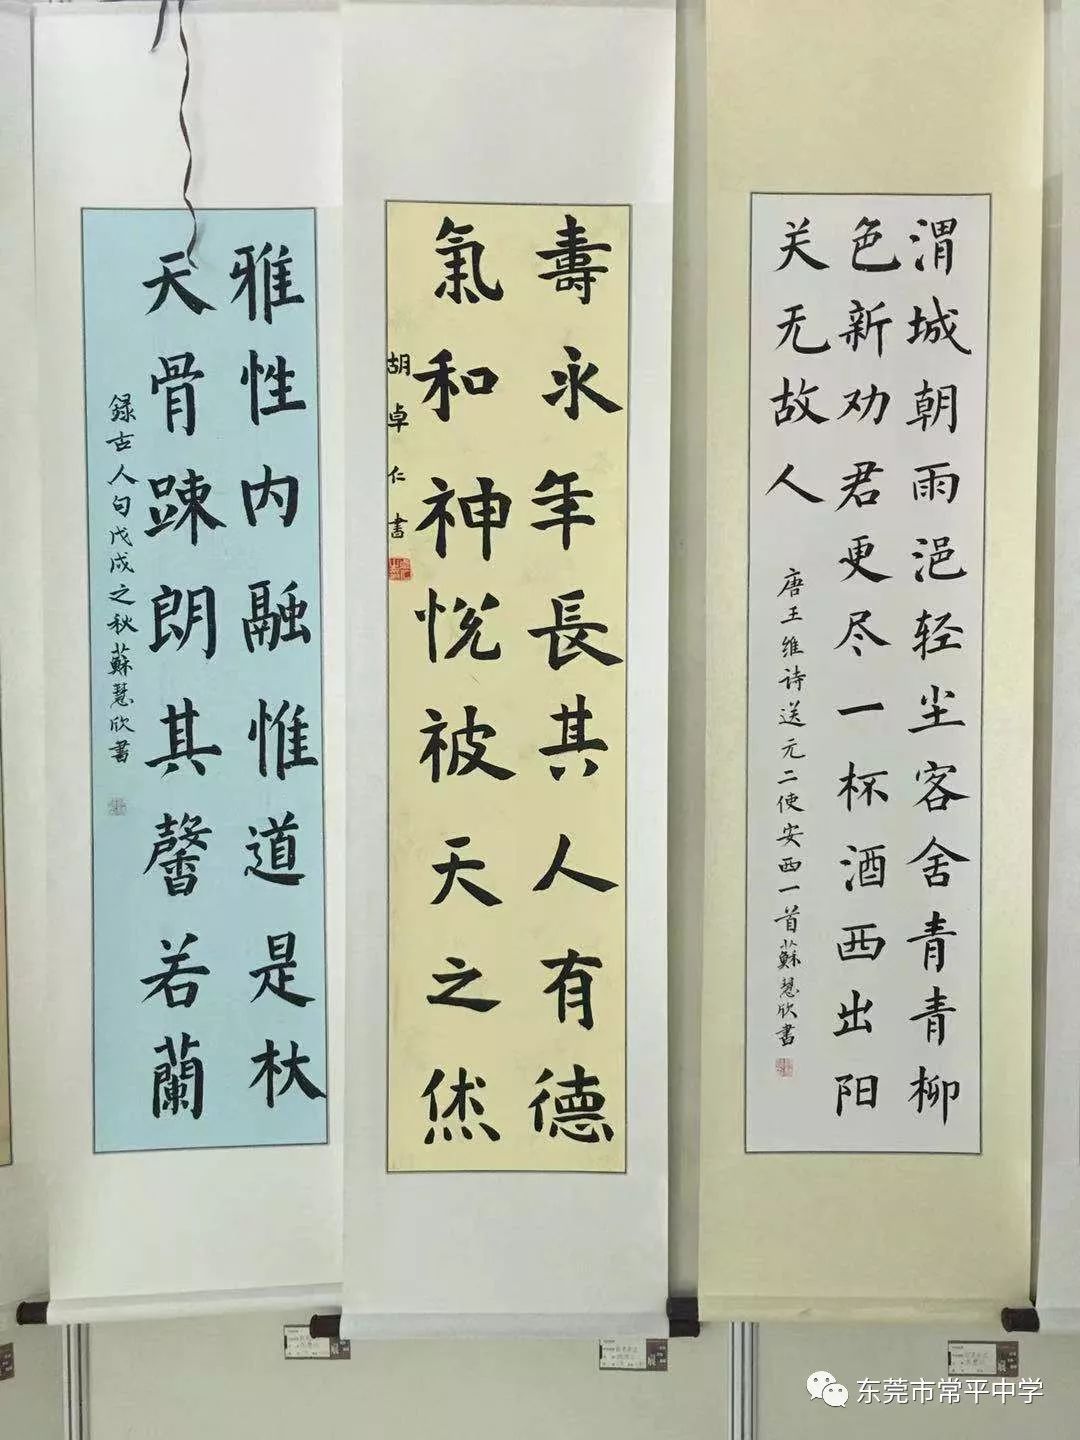 渭城朝雨浥轻尘客舍青青柳
色新劝君更尽一杯酒西出阳
关无故人
唐王维诗送元二使安西一首蘇慧欣书
壽永年長其人有德
氣和神悅被天之烋
胡卓仁書
雅性内融惟道是杖
天骨踈朗其馨若蘭
録古人句戊戌之秋蘇慧欣書
东莞市常平中学